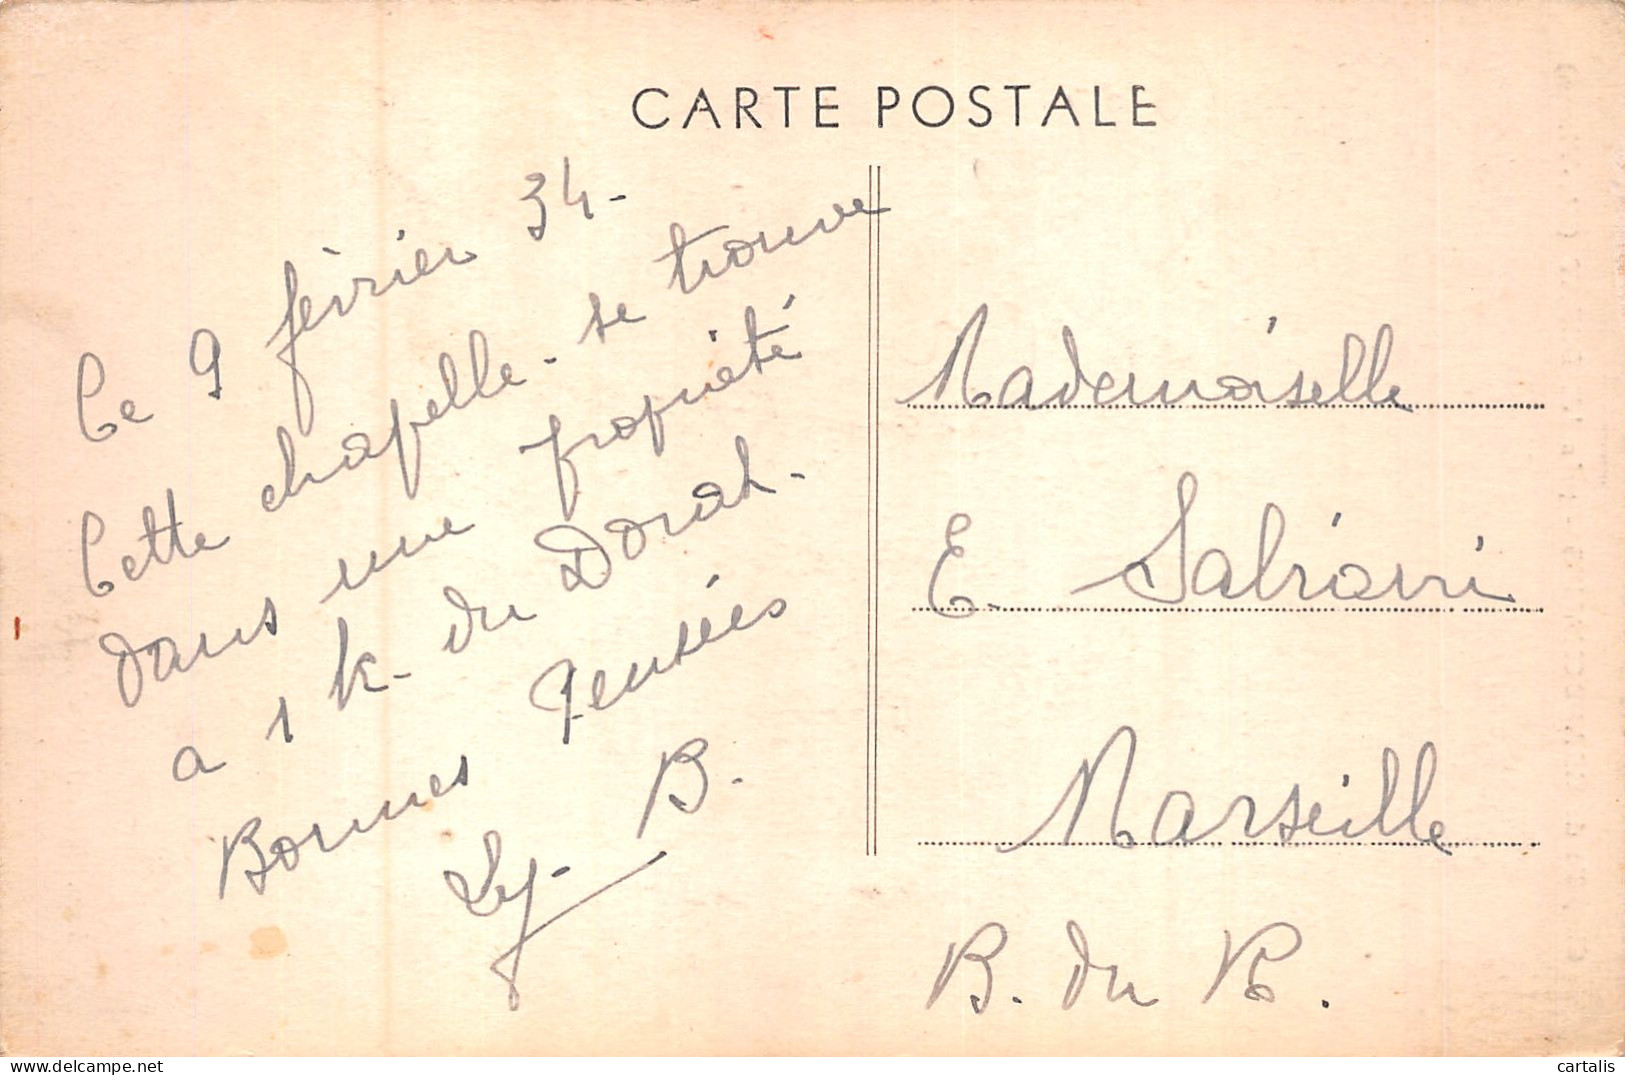 CARTE POSTALE
Ce 9 février 34-
Cette chapelle - se trouve
dans une propriété
a 1 k. du Dorat -
Bonnes Pensées
B.
Mademoiselle
E.
Marseille
B. du R.
cartalis